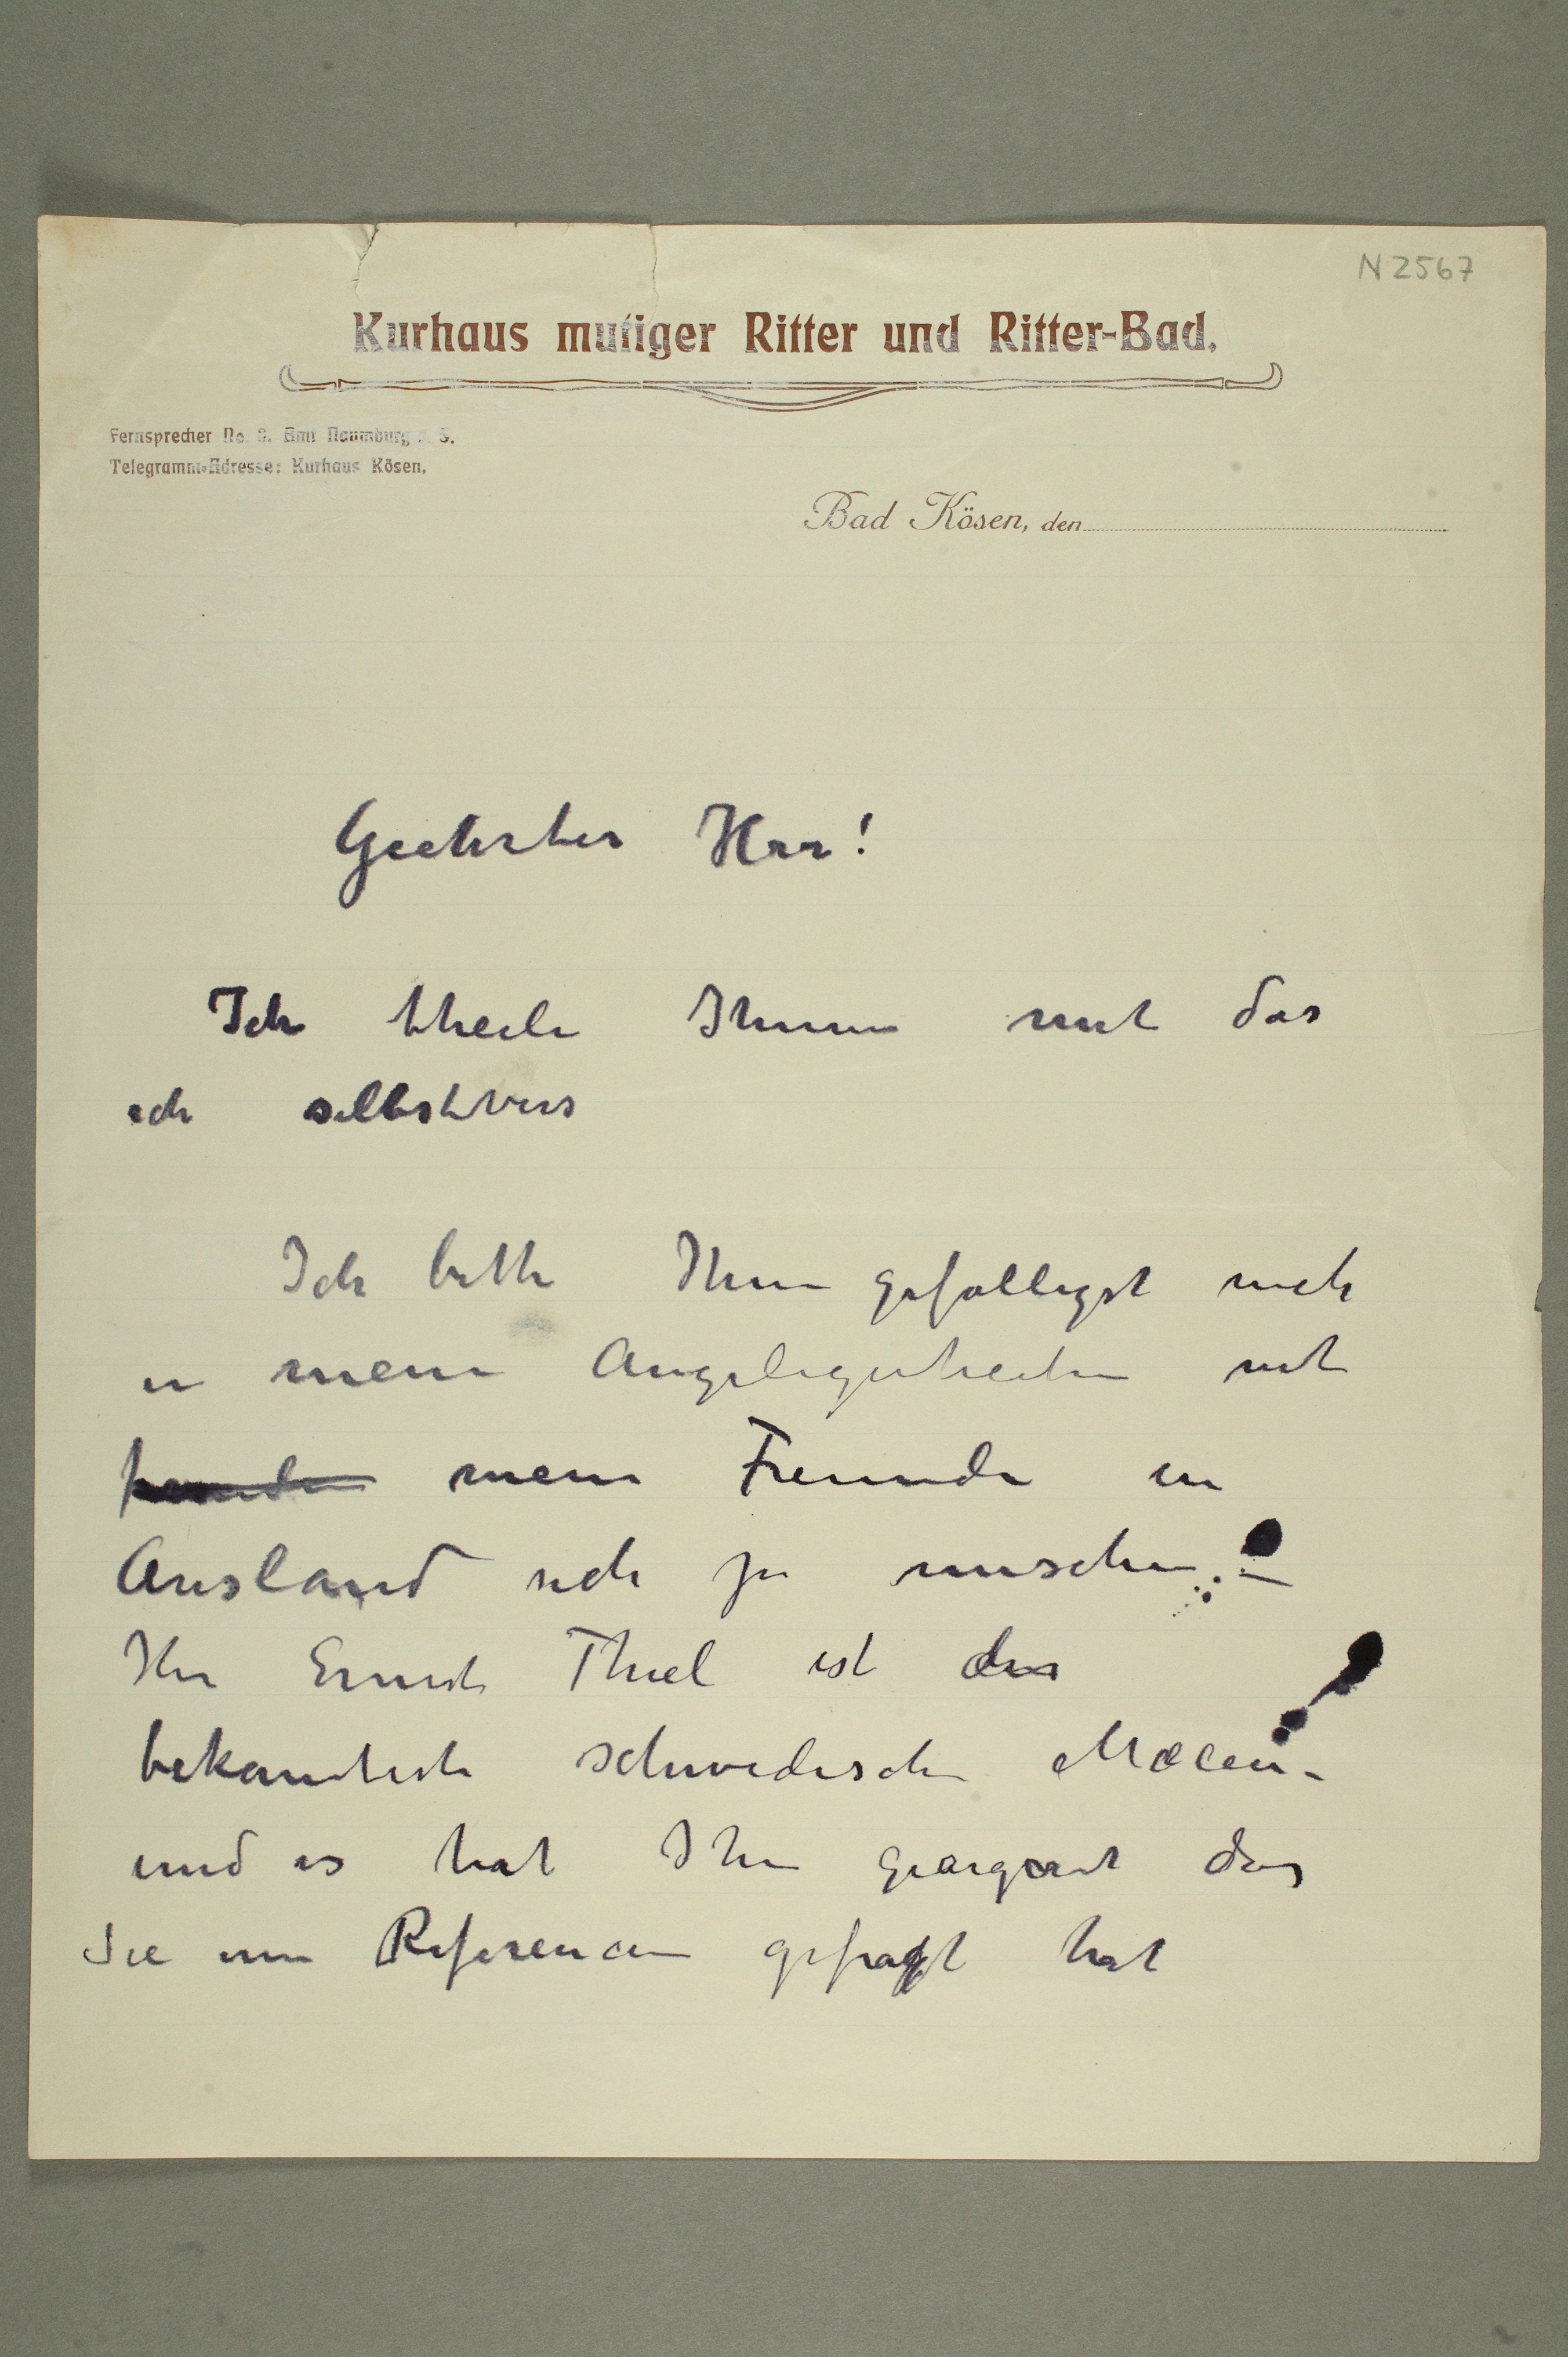 N 2567
Kurhaus mutiger Ritter und Ritter-Bad.
Fernsprecher No. 9. Amt Naumburg a. S.
Telegramm-Adresse: Kurhaus Kösen.
Bad Kösen, den
Geehrter Herr!
Ich theile Ihnen mit das
ich selbstvers
Ich bitte Ihnen gefälligst nich
in meine Angelegenheiten mit
meine Freunde in
Ausland sich zu mischen. –
Herr Ernest Thiel ist der
bekannteste schwedische Mæcen –
und es hat Ihn geärgert das
Sie um Referencen gefragt hat